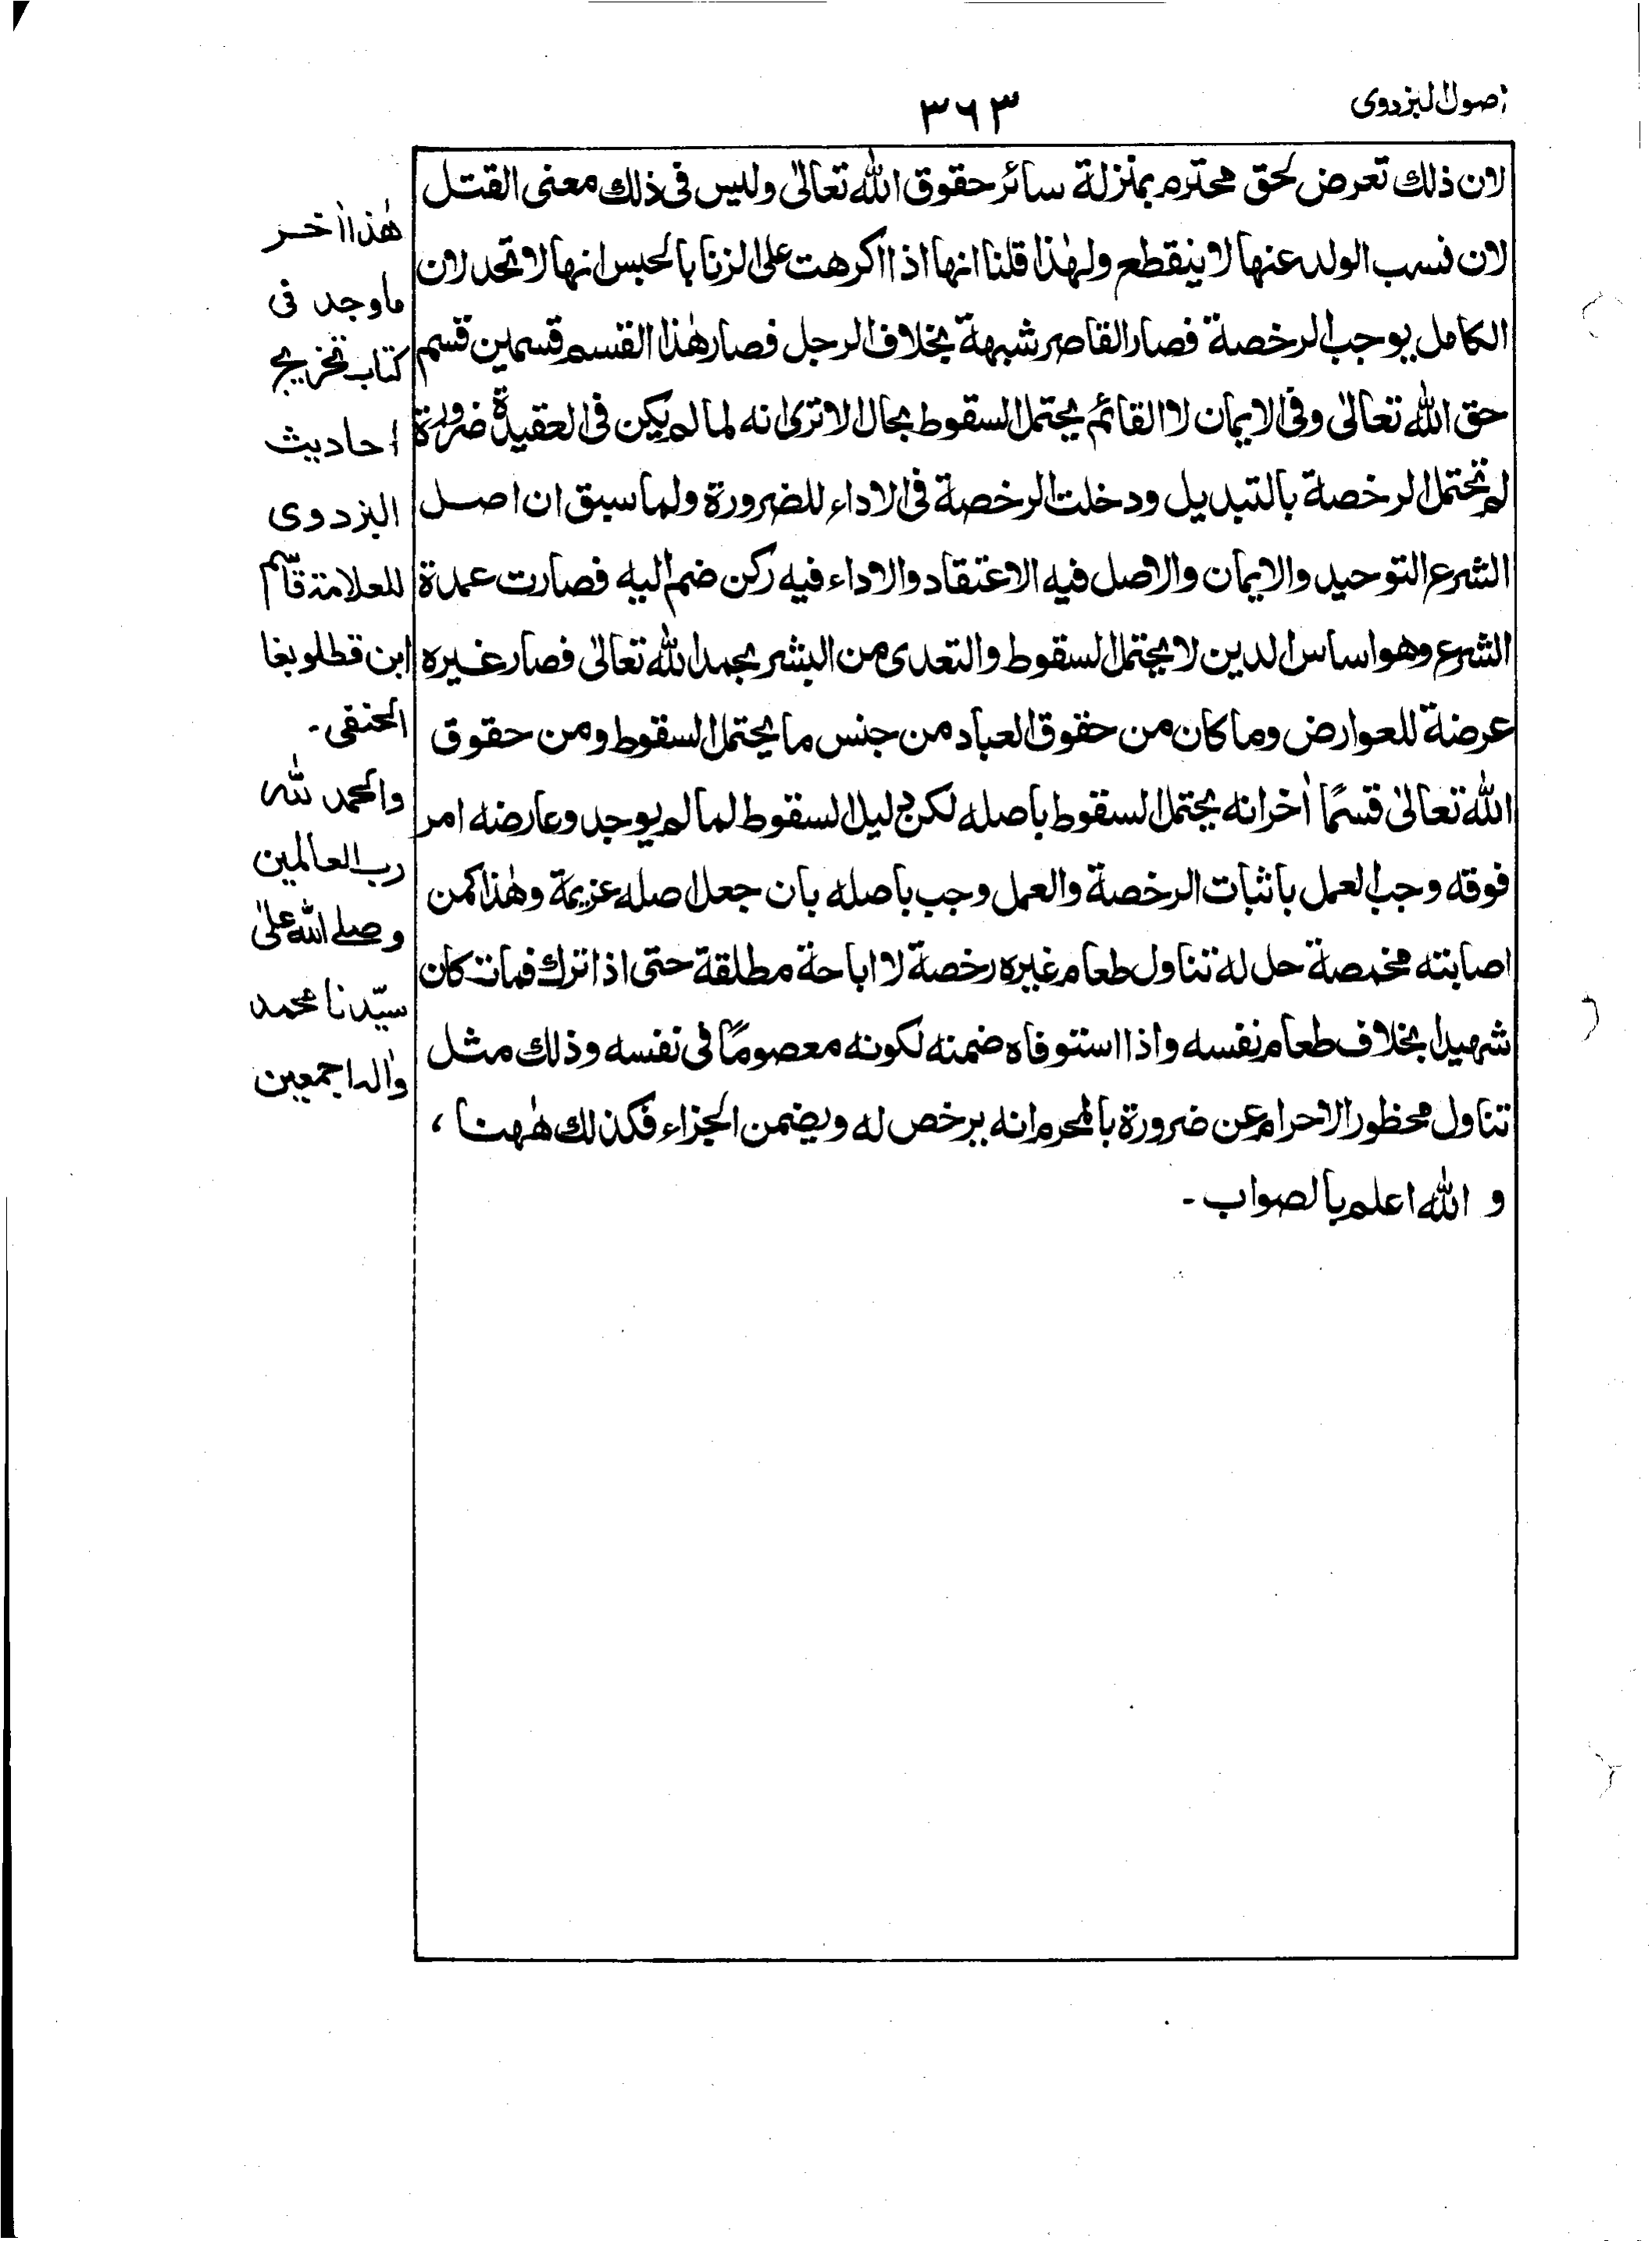 اصول البزدوی
٣٦٣
لان ذلك تعرض لحق محترم بمنزلة سائر حقوق الله تعالىٰ وليس فى ذلك معنى القتل
لان نسب الولد عنها لا ينقطع ولهٰذا قلنا انها اذا اكرهت على الزنا بالحبس انها لا تحد لان
الكامل يوجب الرخصة فصار القاصر شبهة بخلاف الرجل فصار هٰذا القسم قسمين قسم
حق الله تعالىٰ وفى الايمان لا القائم يحتمل السقوط بحال الا ترىٰ انه لما لم يكن فى العقيدة ضرورة
لم تحتمل الرخصة بالتبديل ودخلت الرخصة فى الاداء للضرورة ولما سبق ان اصل
الشرع التوحيد والايمان والاصل فيه الاعتقاد والاداء فيه ركن ضم اليه فصارت عمدة
الشرع وهو اساس الدين لا يحتمل السقوط والتعدى من البشر بحمد الله تعالىٰ فصار غيره
عرضة للعوارض وما كان من حقوق العباد من جنس ما يحتمل السقوط ومن حقوق
الله تعالىٰ قسمًا اٰخر انه يحتمل السقوط باصله لكن دليل السقوط لما لم يوجد وعارضه امر
فوقه وجب العمل باثبات الرخصة والعمل وجب باصله بان جعل اصله عزيمة وهٰذا كمن
اصابته مخمصة حل له تناول طعام غيره رخصة لا اباحة مطلقة حتى اذا ترك فمات كان
شهيدا بخلاف طعام نفسه واذا استوفاه ضمنه لكونه معصومًا فى نفسه وذلك مثل
تناول محظور الاحرام عن ضرورة بالمحرم انه يرخص له ويضمن الجزاء فكذلك هٰهنا ،
و الله اعلم بالصواب -
هٰذا اٰخر
ما وجد فى
كتاب تخريج
احاديث
البزدوى
للعلامة قاسم
ابن قطلوبغا
الحنفى -
والحمد لله
رب العالمين
وصلے الله علىٰ
سيّدنا محمد
واٰله اجمعين